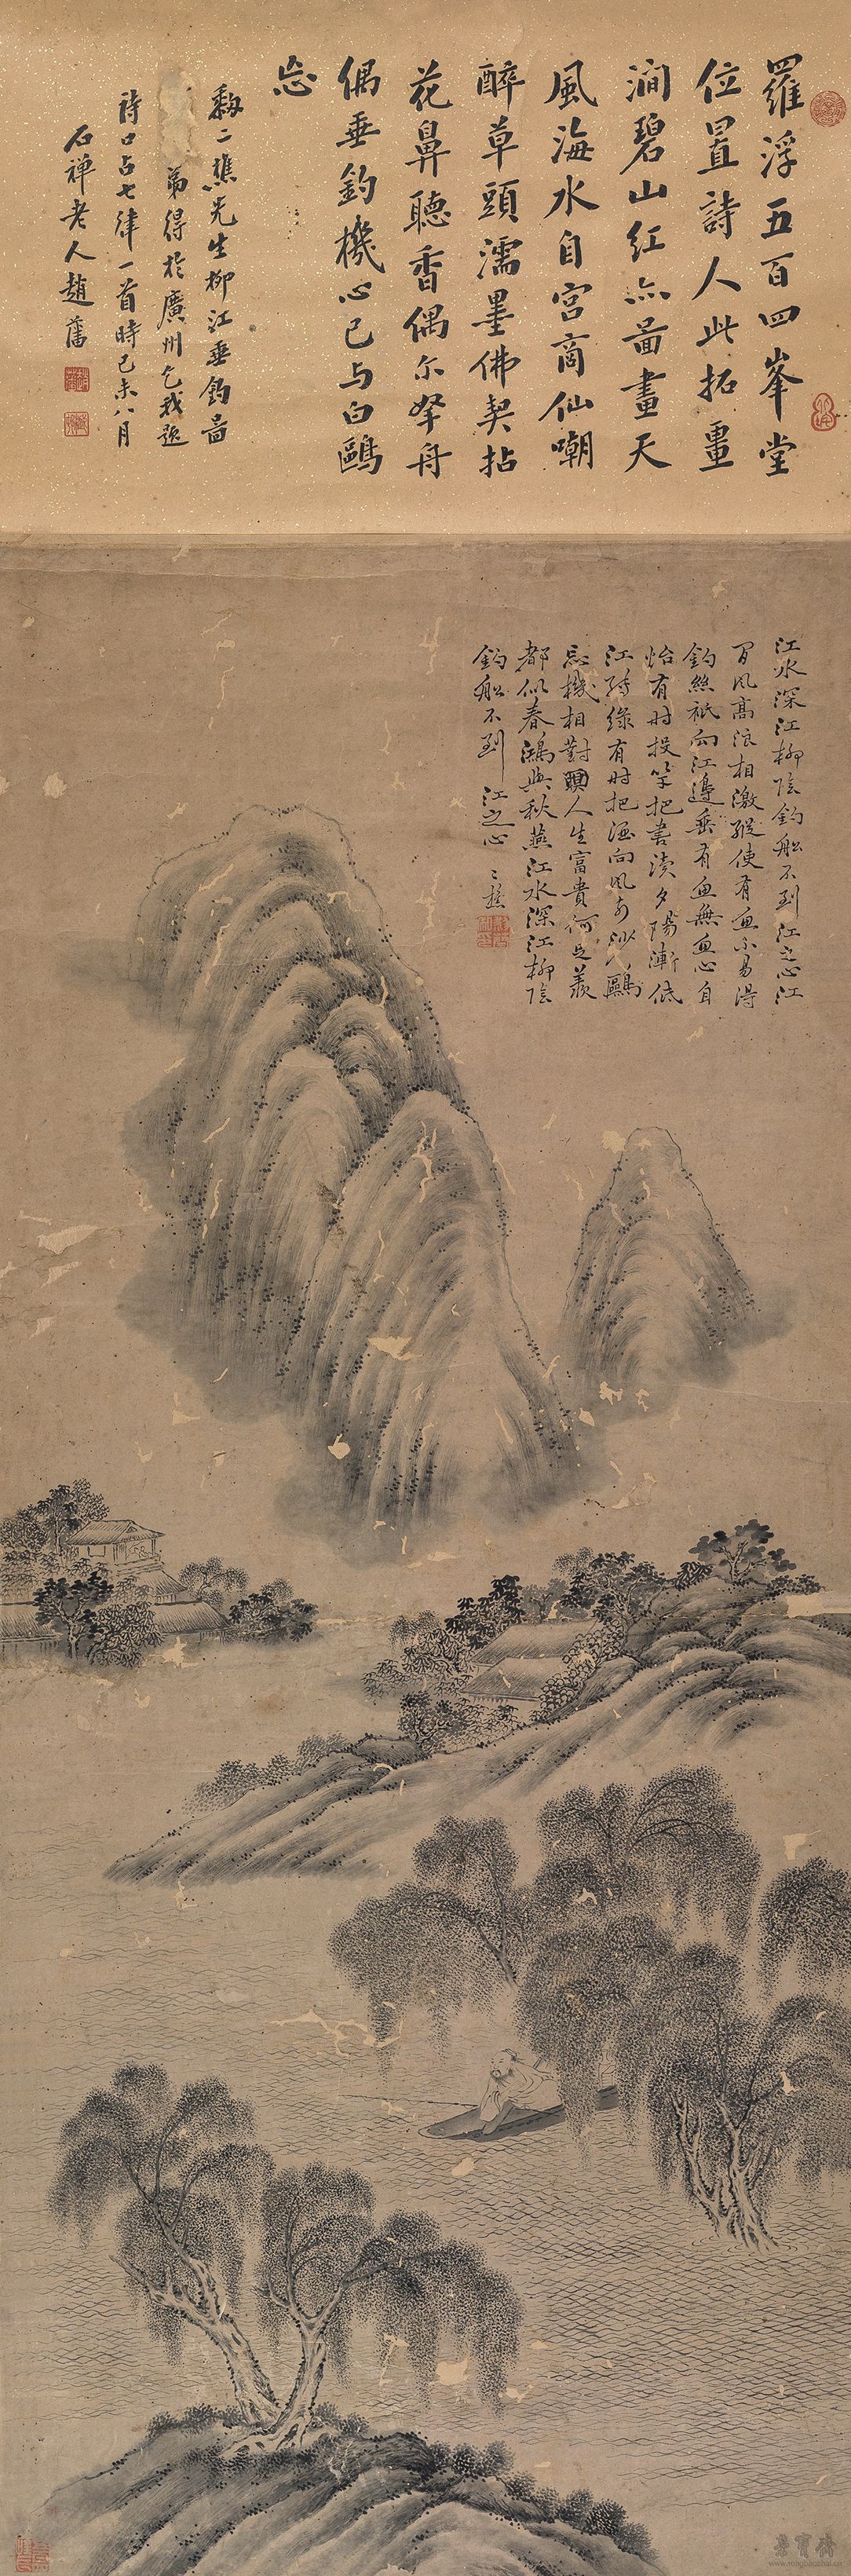 羅浮五百四峯堂
位置詩人此拓畺
澗碧山紅亦啚畫天
風海水自宮商仙嘲
醉草頭濡墨佛契拈
花鼻聽香偶尓孥舟
偶垂釣機心已与白鷗
忘
二樵先生柳江垂釣啚
弟得於廣州乞我題
詩口占七律一首時己未八月
石禅老人趙藩
江水深江柳陰釣船不到江之心江
間風高浪相激縱使有魚不易得
釣絲祇向江邊垂有魚無魚心自
怡有時投竿把書讀夕陽漸低
江轉綠有時把酒向風前沙鷗
忘機相對眠人生富貴何足羨
都似春鴻與秋燕江水深江柳陰
釣船不到江之心 二樵
www.rongbaozhai.cn